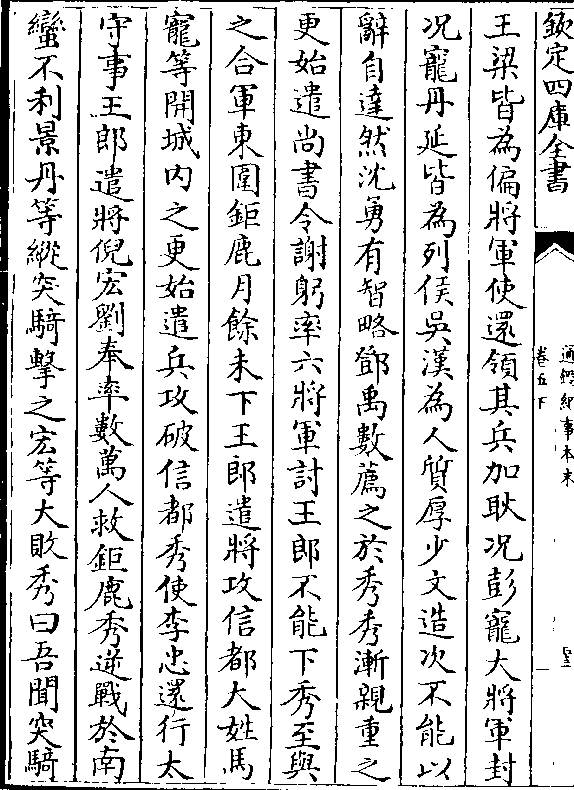 欽定四庫全書
通鑑紀事本末
卷五下
王梁皆為偏將軍使還領其兵加耿况彭寵大將軍封
况寵丹延皆為列侯吳漢為人質厚少文造次不能以
辭自達然沈勇有智略鄧禹數薦之於秀秀漸親重之
更始遣尚書令謝躬率六將軍討王郎不能下秀至與
之合軍東圍鉅鹿月餘未下王郎遣將攻信都大姓馬
寵等開城内之更始遣兵攻破信都秀使李忠還行太
守事王郎遣將倪宏劉奉率數萬人救鉅鹿秀逆戰於南
蠻不利景丹等縱突騎擊之宏等大敗秀曰吾聞突騎